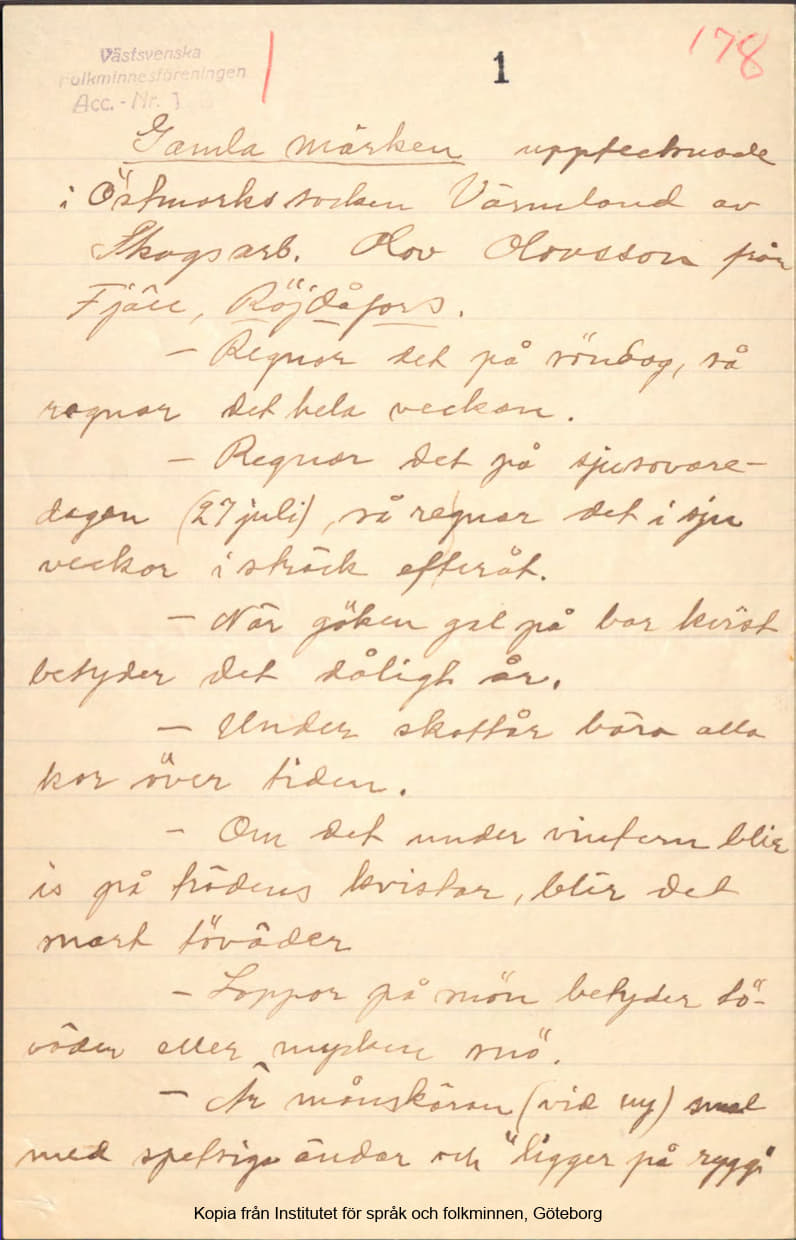 Västsvenska
Folkminnesföreningen
Acc.-Nr. 1
1
178
Gamla märken upptecknade
i Östmarks socken Värmland av
Skogsarb. Olov Olovsson från
Fjäll, Röjdåfors.
— Regnar det på söndag, så
regnar det hela veckan.
— Regnar det på sjusovare-
dagen (27 juli), så regnar det i sju
veckor i sträck efteråt.
— När göken gal på bar kvist
betyder det dåligt år.
— Under skottår bära alla
kor över tiden.
— Om det under vintern blir
is på trädens kvistar, blir det
snart töväder
— Loppor på snön betyder tö-
väder eller mycken snö.
— Är månskäran (vid ny) smal
med spetsiga ändar och "ligger på rygg"
Kopia från Institutet för språk och folkminnen, Göteborg